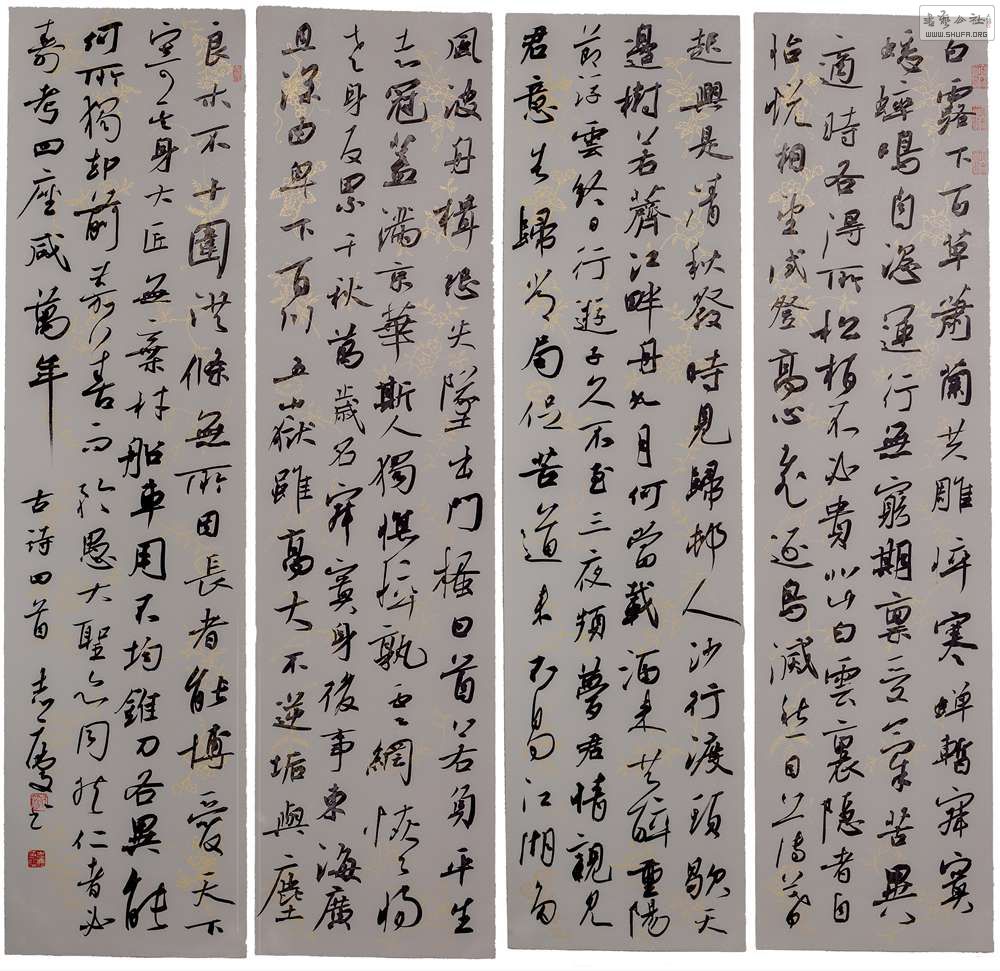 白露下百草蕭蘭共雕悴寒蟬暫寂寞
蟋蟀鳴自恣運行無窮期稟受氣苦異
適時各得所松柏不必貴北山白雲裏隱者自
怡悅相望試登高心飛逐鳥滅愁因薄暮
起興是清秋發時見歸邨人沙行渡頭歇天
邊樹若薺江畔舟如月何當載酒來共醉重陽
節浮雲終日行遊子久不至三夜頻夢君情親見
君意告歸常局促苦道來不易江湖多
風波舟楫恐失墜出門搔白首若負平生
志冠蓋滿京華斯人獨憔悴孰云網恢恢將
老身反累千秋萬歲名寂寞身後事東海廣
且深由卑下百川五嶽雖高大不逆垢與塵
良木不十圍洪條無所因長者能博愛天下
寄其身大匠無棄材船車用不均錐刀各異能
何所獨卻前嘉善而矜愚大聖亦同然仁者必
壽考四座咸萬年
古詩四首
書藝公社
WWW.SHUFA.ORG